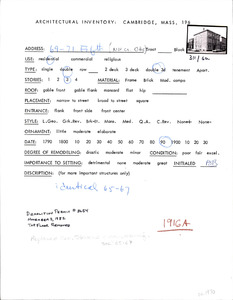 ARCHITECTURAL INVENTORY: CAMBRIDGE, MASS, 196
ADDRESS: 69-71 Front Block
311/60
USE: residential commercial religious
TYPE: single double row 2 deck 3 deck double 3d tenement Apart.
STORIES: 1 2 3 4 MATERIAL: Frame Brick Mod. comps
ROOF: gable front gable flank mansard flat hip
PLACEMENT: narrow to street broad to street square
ENTRANCE: flank front side front center
STYLE: L.Geor. Grk.Rev. Brk-It. Mans. Med. Q.A. C.Rev. Nonest- None-
ORNAMENT: little moderate elaborate
DATE: 1790 1800 10 20 30 40 50 60 70 80 90 1900 10 20 30
DEGREE OF REMODELING: drastic moderate minor CONDITION: poor fair excel.
IMPORTANCE TO SETTING: detrimental none moderate great INITIALED
DESCRIPTION: (for more important structures only)
identical 65-67
DEMOLITION PERMIT # 8654
NOVEMBER 3, 1982
TOP FLOOR REMOVED
1916A